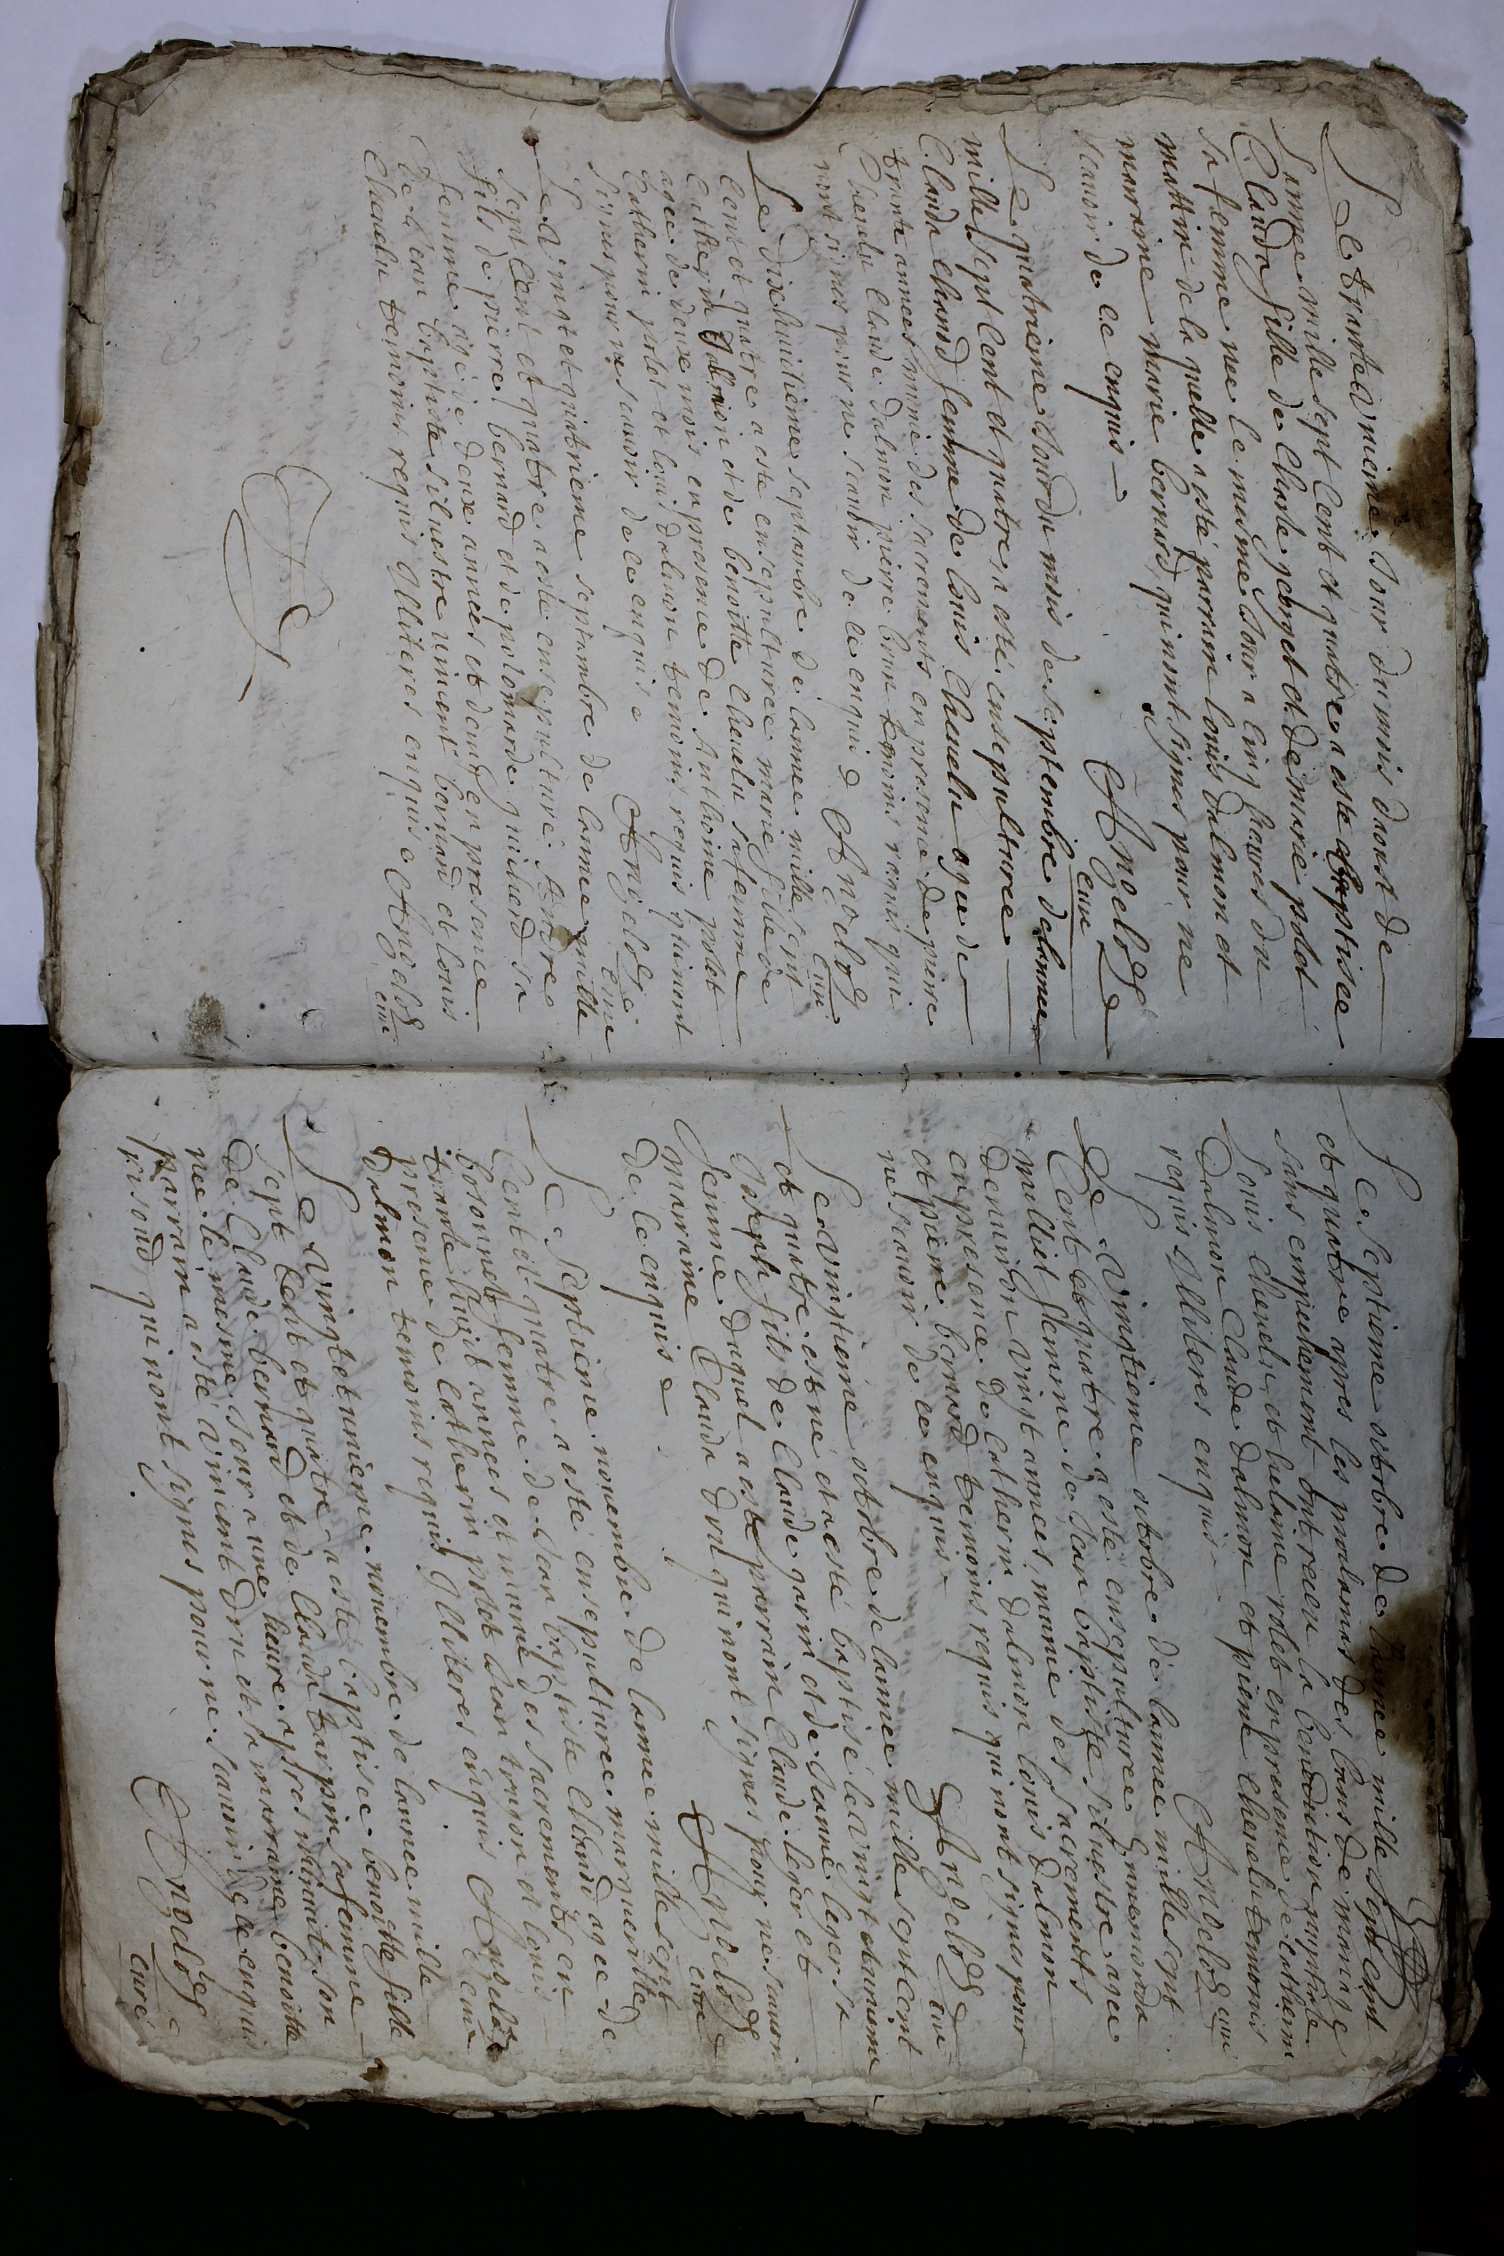 Le trante unieme Jour du mois daoust de
Lannee mille sept Cent et quatre a esté baptisée
Clauda fille de Charle gonget et de marie polot
sa femme nee le mesme Jour a cinq heures du
mattin de la quelle a esté parrain louis dalmon et
marraine marie bernard qui nont signes pour ne
scauoir de ce enquis
Angelod
curé
Le quatrieme Jour du mois de septembre de lannee
mille sept Cent et quatre a esté ensepulturee
Clauda Chanod femme de louis Cheuelu agee de
trante annees munie des sacrements en presence de pierre
Cheuelu Claude dalmon pierre temoins requis qui
nont signes pour ne scauoir de ce enquis Angelod
curé
Le dixhuitieme septambre de lannee mille sept
Cent et quatre a esté ensepulturee marie fille de
et de benoitte Cheuelu sa femme
agee de deux mois en presence de Anthoine polot
Catherin polot et louis dalmon temoins requis qui nont
signes pour ne scauoir de ce enquis Angelod
curé
Le vingt et quatrieme septambre de lannee mille
sept Cent et quatre a esté ensepulturé Andre
fils de pierre bernard et de polomarde guichard sa
femme agé de deux annees et demy en presence
de Jean baptiste siluestre uincent bernard et louis
Cheuelu temoins requis Illiteres enquis Angelod
curé
Le septieme octobre de lannee mille sept cent
et quatre apres les proclamas des bans de mariage
sans empechement ont receu la benediction nuptiale
Louis Cheuelu et rolet en presence de Catherin
dalmon Claude dalmon et pierre Cheuelu temoins
requis Illiteres enquis Angelod curé
Le vingtieme octobre de lannee mille sept
Cent et quatre a esté ensepulturee
milliet femme de Jean baptiste siluestre agee
denuiron vingt annees munie des sacrements
en presence de Catherin dalmon louis dalmon
et pierre bernard temoins requis qui nont signes pour
ne scauoir de ce enquis Angelod curé
Le vingtieme octobre de lannee mille sept cent
et quatre est né et a esté baptisé le vingt et unieme
Joseph fils de Claude garin et de Jeanne leger sa
femme duquel a esté parrain Claude leger et
marraine Clauda dru qui nont signes pour ne scauoir
de ce enquis Angelod
curé
Le septieme nouembre de lannee mille sept
Cent et quatre a esté ensepulturee marguerite
bosonnet femme de Jean baptiste Chanod agee de
trante huit annees et munie des sacrements en
presence de Catherin polot Jean trugon et louis
dalmon temoins requis Illiteres enquis Angelod
curé
Le vingt et unieme nouembre de lannee mille
sept Cent et quatre a esté baptisee benoitte fille
de Claude bernard et de Clauda tarpin sa femme
nee le mesme Jour a une heure apres minuit son
parrain a esté vincent dru et sa marraine benoitte
prisond qui nont signes pour ne scauoir de ce enquis
Angelod
curé